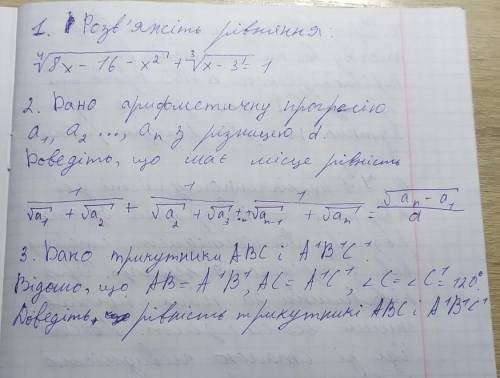 1. Розв'яжіть рівняння:
∜(8x - 16 - x²) + ∛(x - 3) = 1
2. Дано арифметичну прогресію
a₁, a₂ ..., aₙ з різницею d.
Доведіть, що має місце рівність
1/(√a₁ + √a₂) + 1/(√a₂ + √a₃) + ... + 1/(√aₙ₋₁ + √aₙ) = (√aₙ - a₁)/d
3. Дано трикутники ABC і A¹B¹C¹.
Відомо, що AB = A¹B¹, AC = A¹C¹, ∠C = ∠C¹ = 120°.
Доведіть, рівність трикутникі ABC і A¹B¹C¹